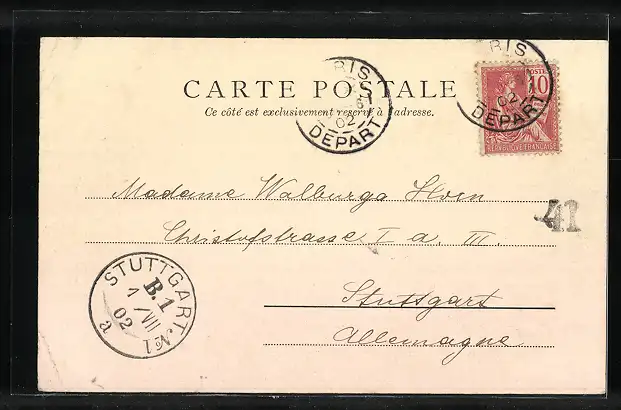 RIS
DEPART
02
RIS
DEPART
02
POSTES
10
REPUBLIQUE FRANÇAISE
CARTE POSTALE
Ce côté est exclusivement réservé à l'adresse.
Madame Walburga
41
Christofstrasse I a. III.
STUTTGART No 1
B.1
1 /VII
02
a
Stuttgart
Allemagne